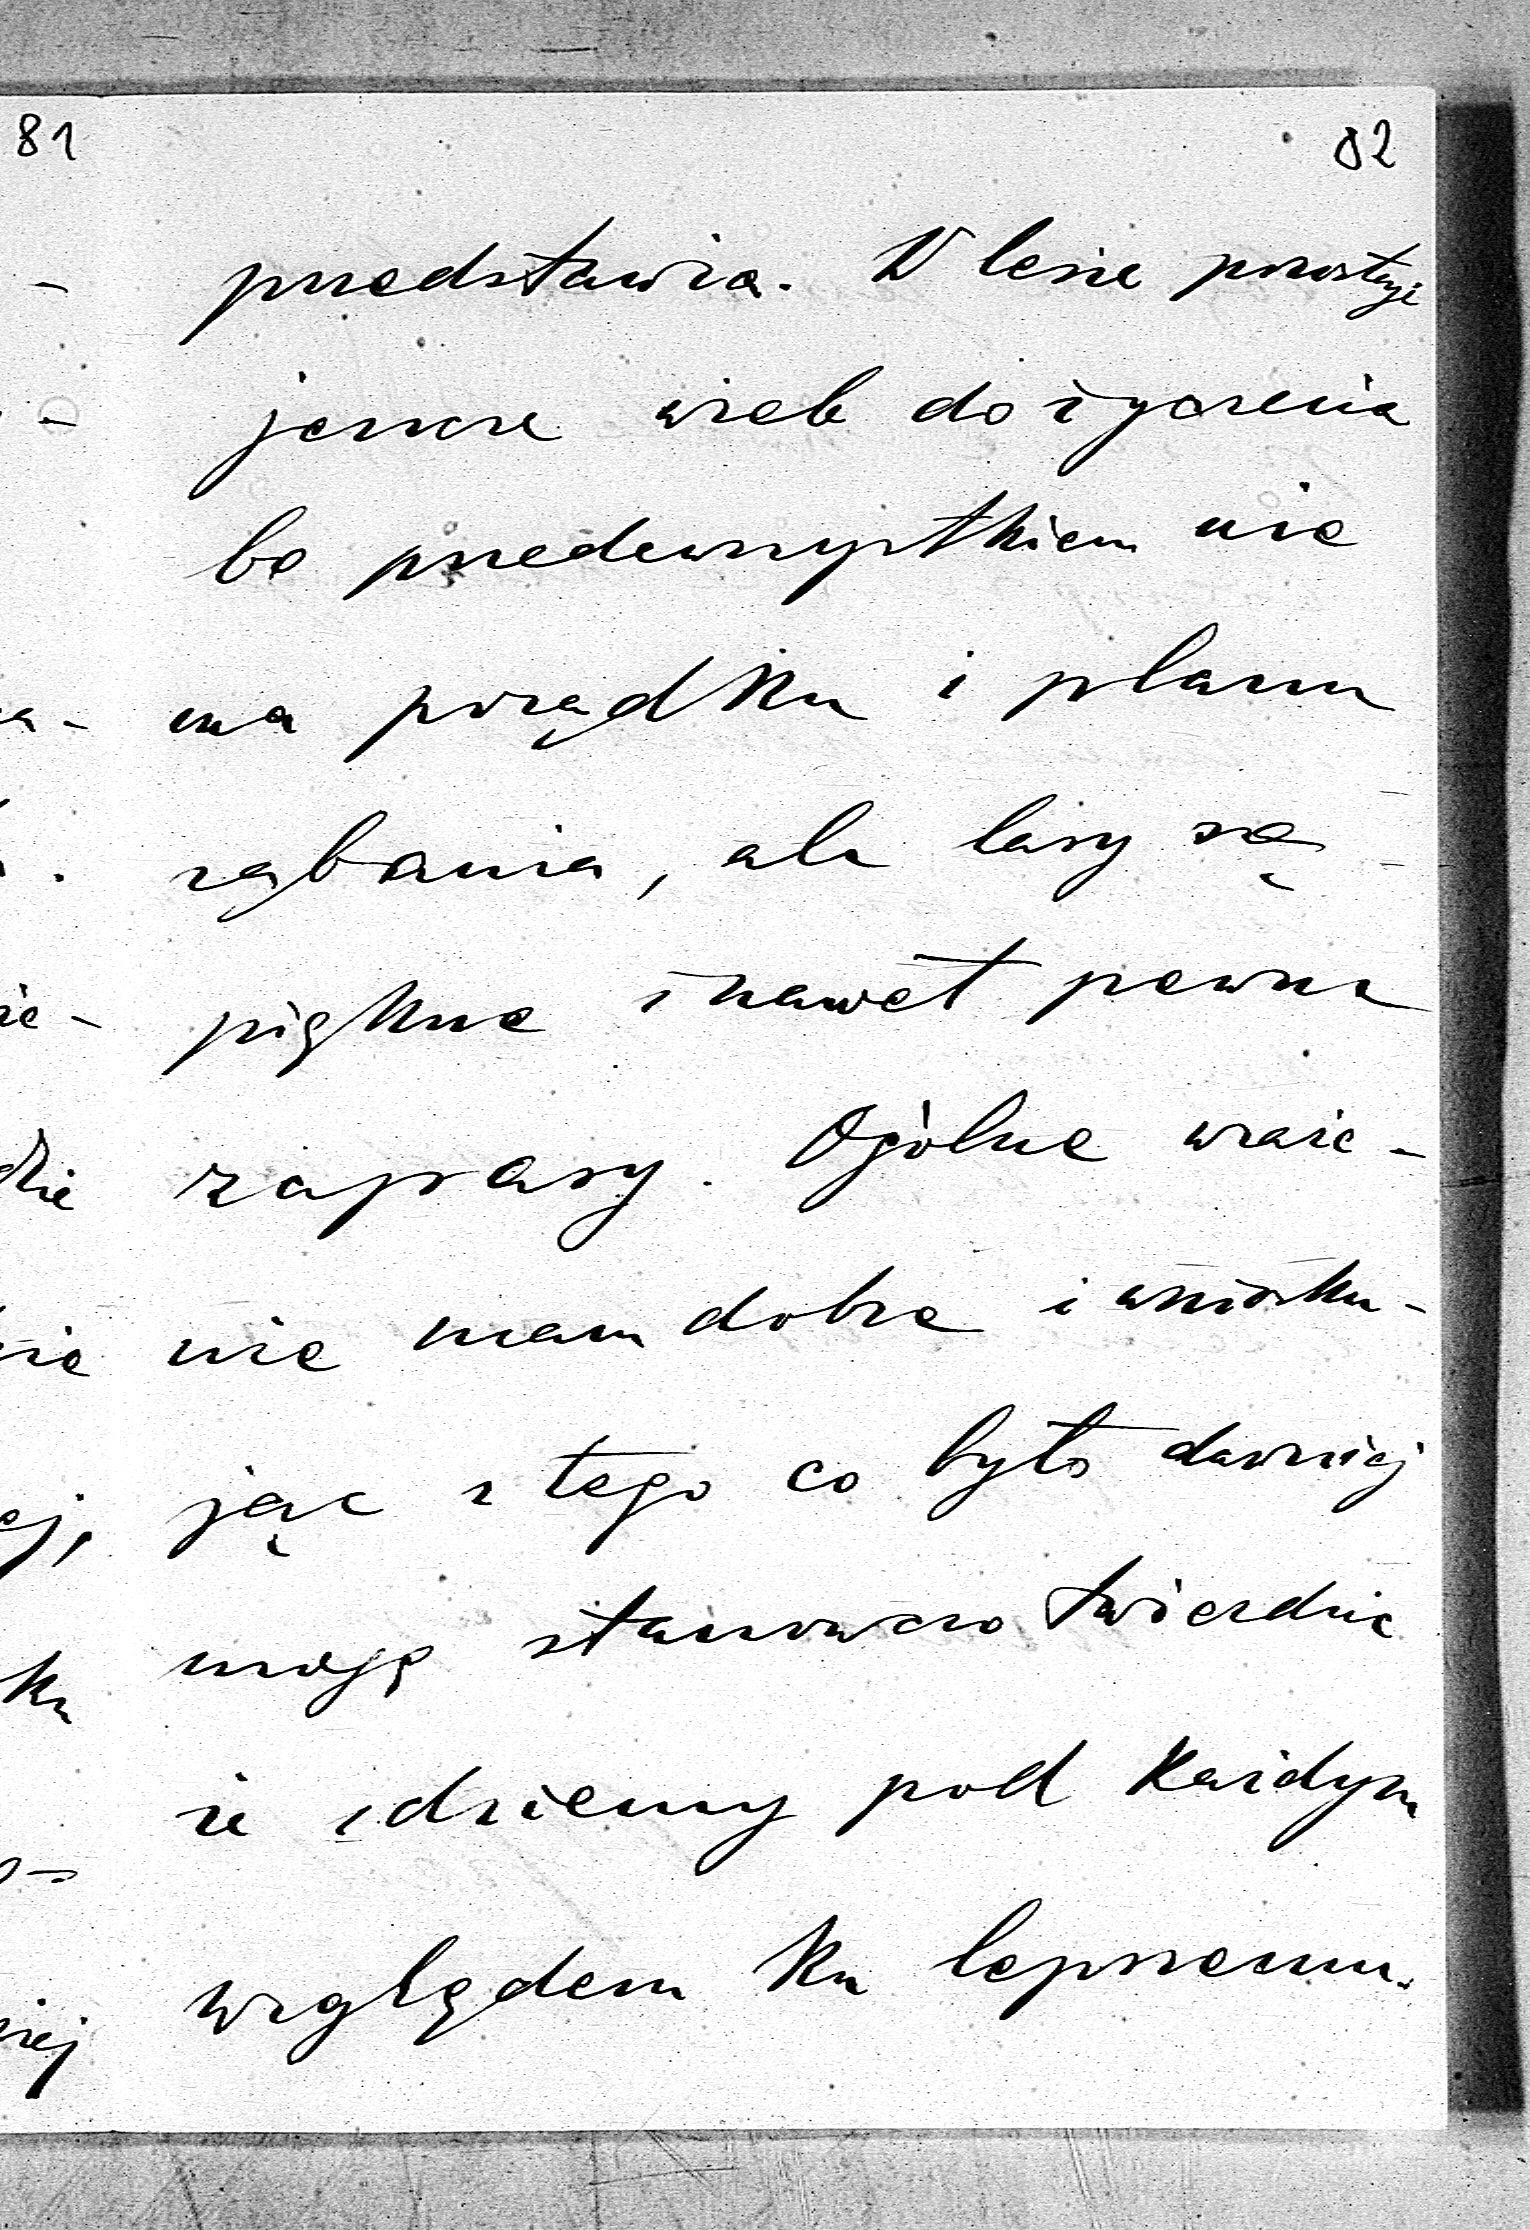 81
82
przedstawia. W lesie pozostaje
jeszcze wiele do życzenia
bo przedewszystkiem nie
ma porządku i planu
rąbania, ale lasy są
piękne i nawet pewne
zapasy. Ogólne wraże-
nie mam dobre i wniosku-
jąc z tego co było dawniej
mogę stanowczo twierdzić
że idziemy pod każdym
względem ku lepszemu.